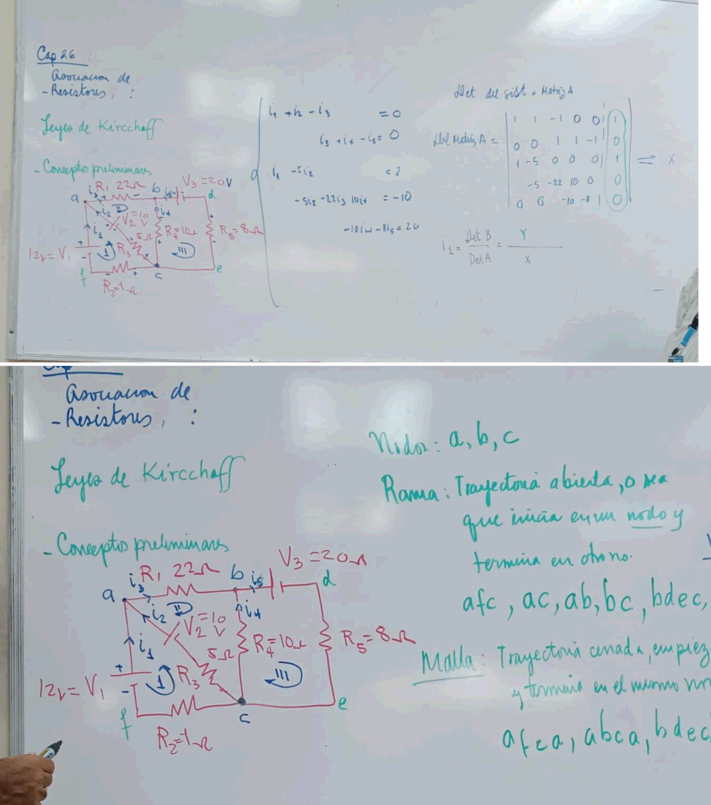 Cap 26
Asociacion de
- Resistores, :
Leyes de Kircchoff
- Conceptos preliminares
R₁ 22Ω
V₃ = 20V
a
b
d
i₃
i₅
i₂
II
V₂ = 10
V
i₄
i₁
5Ω
R₄ = 10Ω
R₅ = 8Ω
R₃
12v = V₁
I
III
f
c
e
R₂ = 1Ω
i₁ + i₂ - i₃ = 0
i₃ + i₄ - i₅ = 0
i₁ - 5i₂ = 2
-5i₂ - 22i₃ 10i₄ = -10
-10i₄ - 8i₅ = 20
Det del sist = Matriz A
Del Matriz A =
1 1 -1 0 0 1
0 0 1 1 -1 0
1 -5 0 0 0 1
-5 -22 10 0 0
0 0 -10 -8 0
= x
i₁ = Det B / Del A = Y / X
Asociacion de
- Resistores, :
Leyes de Kircchoff
- Conceptos preliminares
R₁ 22Ω
V₃ = 20Ω
a
b
d
i₃
i₅
i₂
II
V₂ = 10
V
i₄
i₁
5Ω
R₄ = 10Ω
R₅ = 8Ω
R₃
12v = V₁
+
-
I
III
f
c
e
R₂ = 1Ω
Nodos: a, b, c
Rama: Trayectoria abierta, o sea
que inicia en un nodo y
termina en otro no.
afc, ac, ab, bc, bdec,
Malla: Trayectoria cerrada, empiez
y termina en el mismo no
afca, abca, bdec